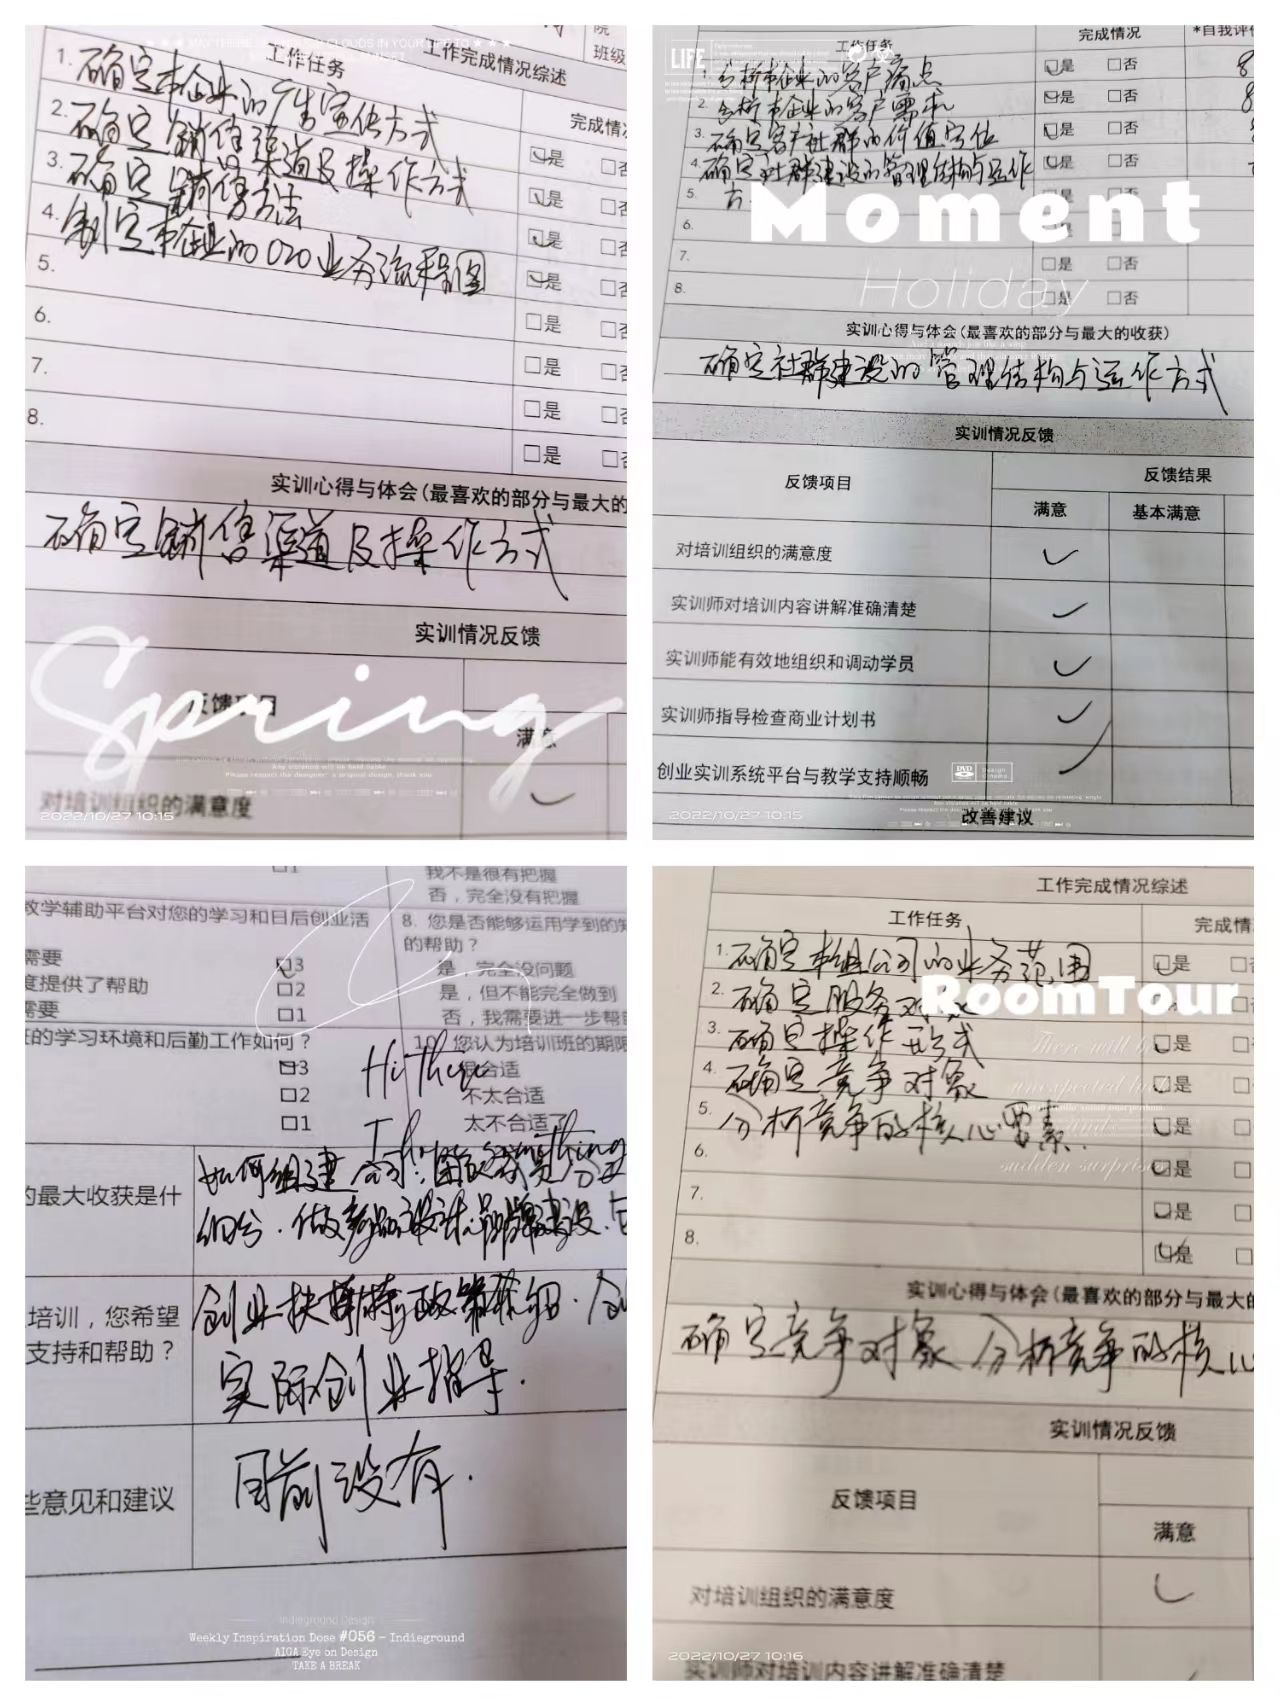 工作完成情况综述
班级
工作任务
完成情
1. 确定本企业的广告宣传方式
2. 确定销售渠道及操作方式
3. 确定销售方法
4. 制定本企业的O2O业务流程图
5.
6.
7.
8.
是 否
是 否
是 否
是 否
是
是
是
是
实训心得与体会(最喜欢的部分与最大的
确定销售渠道及操作方式
实训情况反馈
Spring
反馈项目
满意
对培训组织的满意度
2022/10/27 10:15
LIFE
工作任务
完成情况
*自我评
1. 分析本企业的客户痛点
是 否
2. 分析本企业的客户需求
是 否
3. 确定客户社群的价值定位
是 否
4. 确定社群建设的管理结构与运作
是 否
5. 方
是 否
Moment
6.
7.
是 否
8.
是 否
Holiday
实训心得与体会(最喜欢的部分与最大的收获)
确定社群建设的管理结构与运作方式
实训情况反馈
反馈项目
反馈结果
满意
基本满意
对培训组织的满意度
实训师对培训内容讲解准确清楚
实训师能有效地组织和调动学员
实训师指导检查商业计划书
创业实训系统平台与教学支持顺畅
DVD
Design
Cinema
改善建议
2022/10/27 10:15
我不是很有把握
否，完全没有把握
教学辅助平台对您的学习和日后创业活
8. 您是否能够运用学到的知
的帮助？
需要
3
是，完全没问题
度提供了帮助
2
是，但不能完全做到
需要
1
否，我需要进一步帮
班的学习环境和后勤工作如何？
10. 您认为培训班的期限
3
很合适
2
不太合适
1
太不合适了
Hi there
的最大收获是什
如何组建公司
细分.做产品设计.品牌建设.
培训，您希望
支持和帮助？
创业扶持政策介绍.创
实际创业指导.
些意见和建议
目前没有.
Indieground Design
Weekly Inspiration Dose #056 – Indieground
AIGA Eye on Design
TAKE A BREAK
工作完成情况综述
工作任务
完成情
1. 确定本组公司的业务范围
是
2. 确定服务对象
RoomTour
3. 确定操作形式
是
4. 确定竞争对象
是
5. 分析竞争的核心要素.
是
6.
是
7.
是
8.
是
There will be
unexpected
sudden surprise
实训心得与体会(最喜欢的部分与最大的
确定竞争对象 分析竞争的核心
实训情况反馈
反馈项目
满意
对培训组织的满意度
实训师对培训内容讲解准确清楚
2022/10/27 10:16